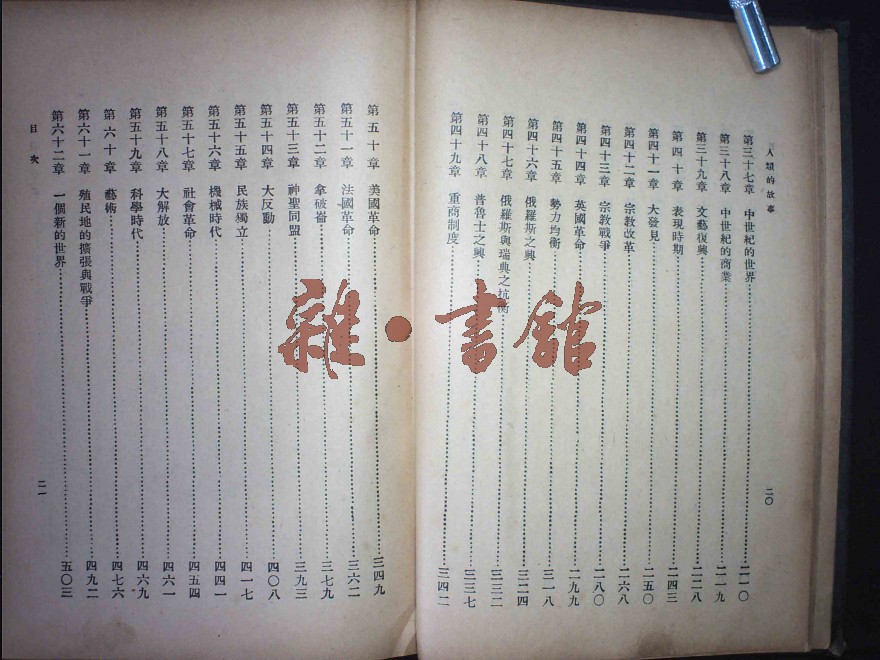 人類的故事
第三十七章 中世紀的世界 二一〇
第三十八章 中世紀的商業 二一九
第三十九章 文藝復興 二二八
第四十章 表現時期 二四三
第四十一章 大發見 二五〇
第四十二章 宗教改革 二六八
第四十三章 宗教戰爭 二八〇
第四十四章 英國革命 二九九
第四十五章 勢力均衡 三一八
第四十六章 俄羅斯之興 三二四
第四十七章 俄羅斯與瑞典之抗衡 三三二
第四十八章 普魯士之興 三三七
第四十九章 重商制度 三四二
二〇
第五十章 美國革命 三四九
第五十一章 法國革命 三六二
第五十二章 拿破崙 三七九
第五十三章 神聖同盟 三九三
第五十四章 大反動 四〇八
第五十五章 民族獨立 四一七
第五十六章 機械時代 四四一
第五十七章 社會革命 四五四
第五十八章 大解放 四六一
第五十九章 科學時代 四六九
第六十章 藝術 四七六
第六十一章 殖民地的擴張與戰爭 四九二
第六十二章 一個新的世界 五〇三
目次
二一
雜·書館